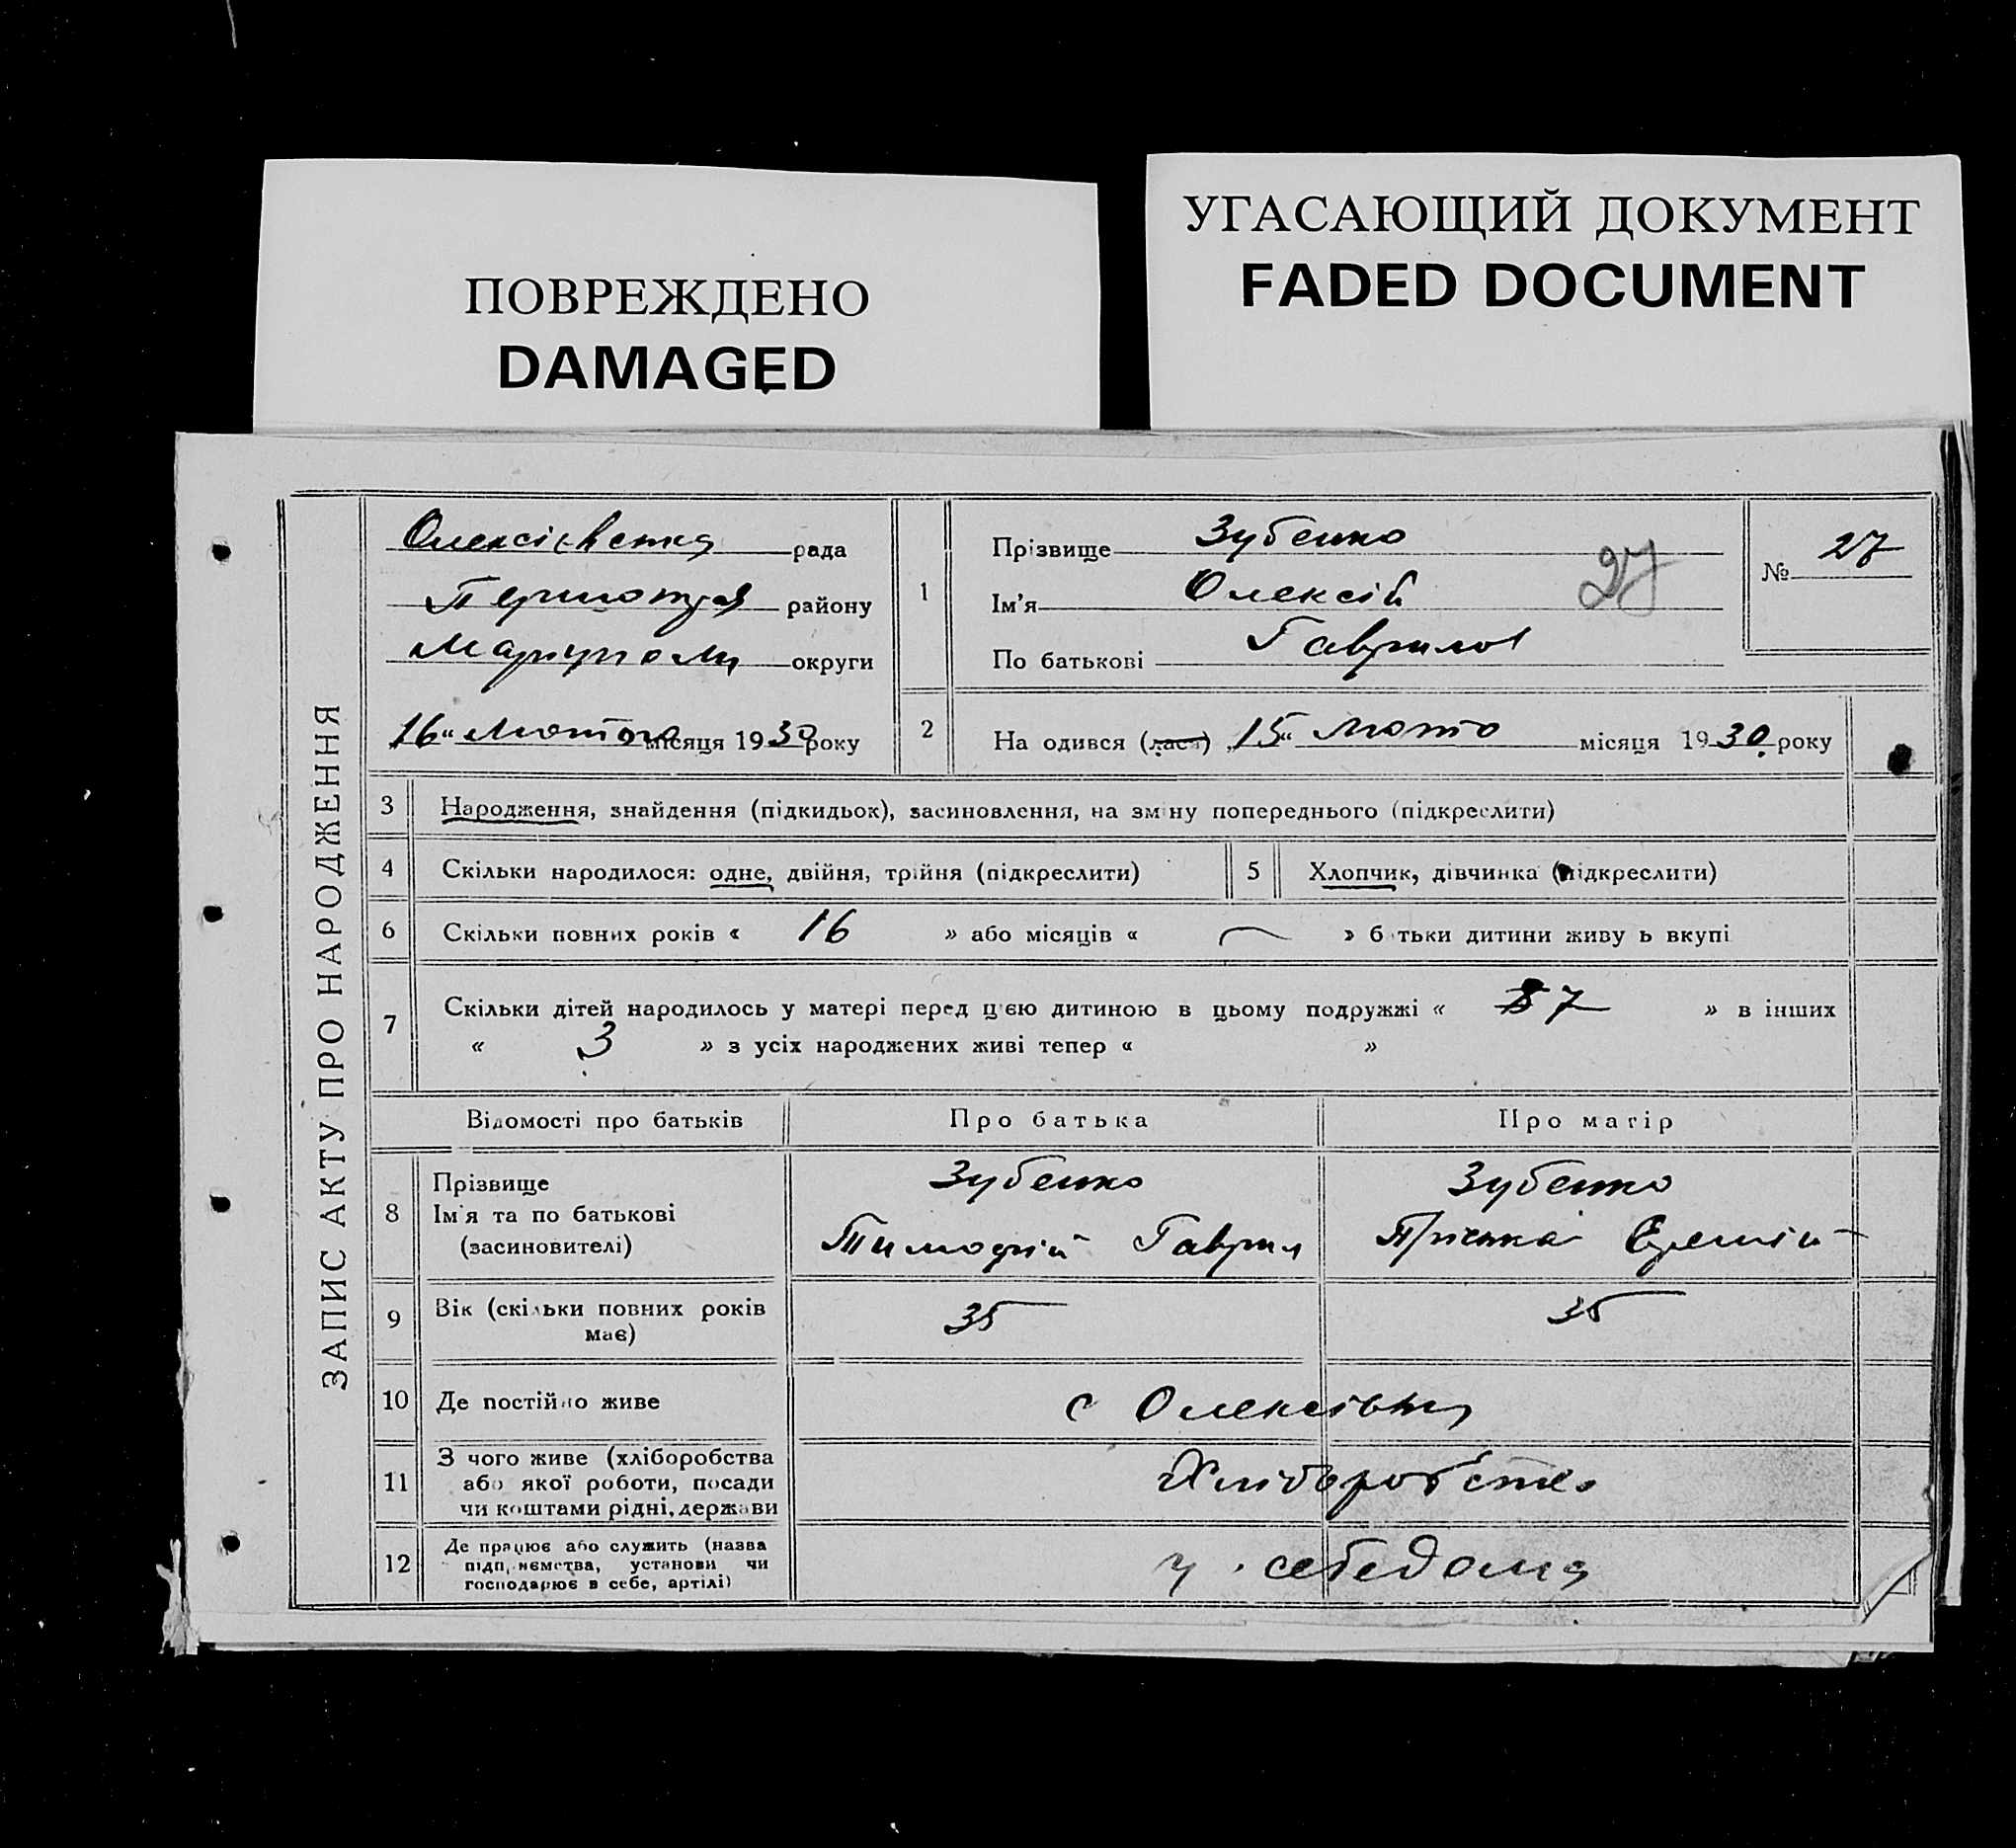 ПОВРЕЖДЕНО
DAMAGED
УГАСАЮЩИЙ ДОКУМЕНТ
FADED DOCUMENT
ЗАПИС АКТУ ПРО НАРОДЖЕННЯ
рада
району
округи
16 " Лютого місяця 1930 року
1
Прізвище Зубенко
Ім'я Олексій
27
По батькові Гаврилов
№ 27
2
На одився (лася) " 15 " Люто місяця 1930 року
3 Народження, знайдення (підкидьок), засиновлення, на зм ну попереднього (підкреслити)
4 Скільки народилося: одне, двійня, трійня (підкреслити)
5 Хлопчик, дівчинка (підкреслити)
6 Скільки повних років « 16 » або місяців « — » б тьки дитини живу ь вкупі
7 Скільки дітей народилось у матері перед цією дитиною в цьому подружжі « 7 » в інших
« 3 » з усіх народжених живі тепер « »
Відомості про батьків
Про батька
Про матір
8 Прізвище
Ім'я та по батькові
(засиновителі)
Зубенко
Тимофій Гаврил
Зубенко
Пріська
9 Вік (скільки повних років
має)
35
35
10 Де постійно живе
с Олексівка
11 З чого живе (хліборобства
або якої роботи, посади
чи коштами рідні, держави
Хліборобство
12 Де працює або служить (назва
підп, иємства, установи чи
господарює в себе, артілі)
у себе дома